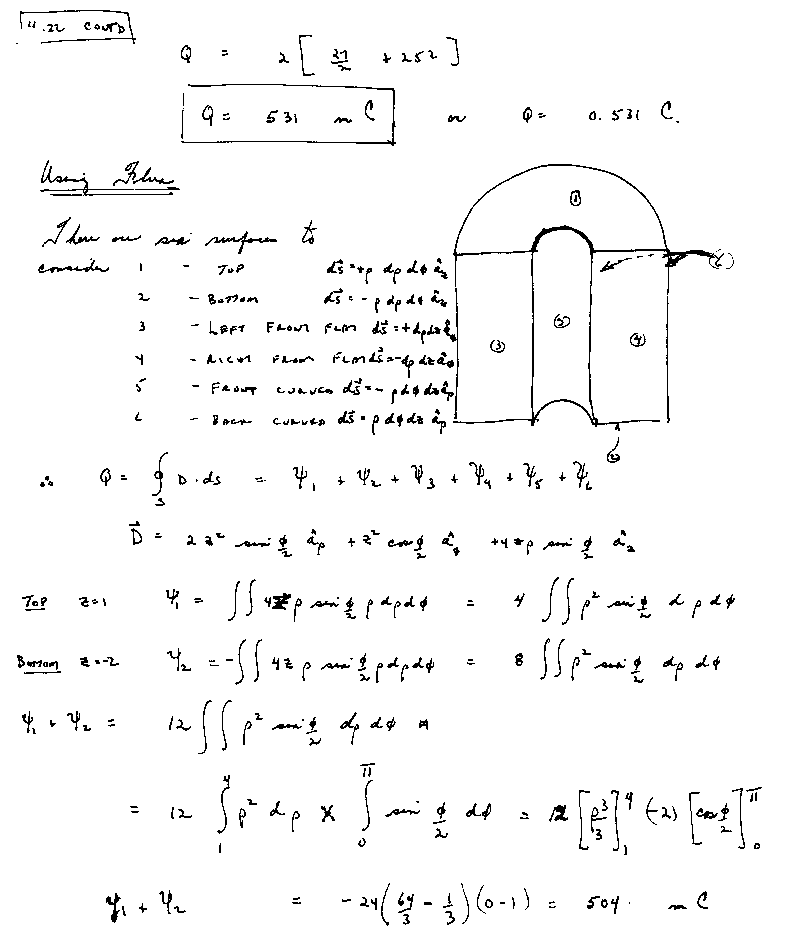 4.22 CONT'D
Q = 2 [ 27/2 + 252 ]
Q = 531 m C or Q = 0.531 C.
Using Flux
There are six surfaces to
consider 1 - TOP ds⃗ = +ρ dρ dφ â_z
2 - BOTTOM ds⃗ = - ρ dρ dφ â_z
3 - LEFT FRONT FLAT ds⃗ = + dρ dz â_φ
4 - RIGHT FRONT FLAT ds⃗ = - dρ dz â_φ
5 - FRONT CURVED ds⃗ = - ρ dφ dz â_ρ
6 - BACK CURVED ds⃗ = ρ dφ dz â_ρ
① ⑥ ③ ⑤ ④ ②
∴ Q = ∮_S D · ds = Ψ₁ + Ψ₂ + Ψ₃ + Ψ₄ + Ψ₅ + Ψ₆
D⃗ = 2 z² sin φ/2 â_ρ + z² cos φ/2 â_φ + 4 z ρ sin φ/2 â_z
TOP z=1 Ψ₁ = ∫∫ 4 z ρ sin φ/2 ρ dρ dφ = 4 ∫∫ ρ² sin φ/2 dρ dφ
BOTTOM z=-2 Ψ₂ = -∫∫ 4z ρ sin φ/2 ρ dρ dφ = 8 ∫∫ ρ² sin φ/2 dρ dφ
Ψ₁ + Ψ₂ = 12 ∫∫ ρ² sin φ/2 dρ dφ
= 12 ∫₁⁴ ρ² dρ × ∫₀^π sin φ/2 dφ = 12 [ρ³/3]₁⁴ (-2) [cos φ/2]₀^π
Ψ₁ + Ψ₂ = -24 (64/3 - 1/3)(0-1) = 504. m C